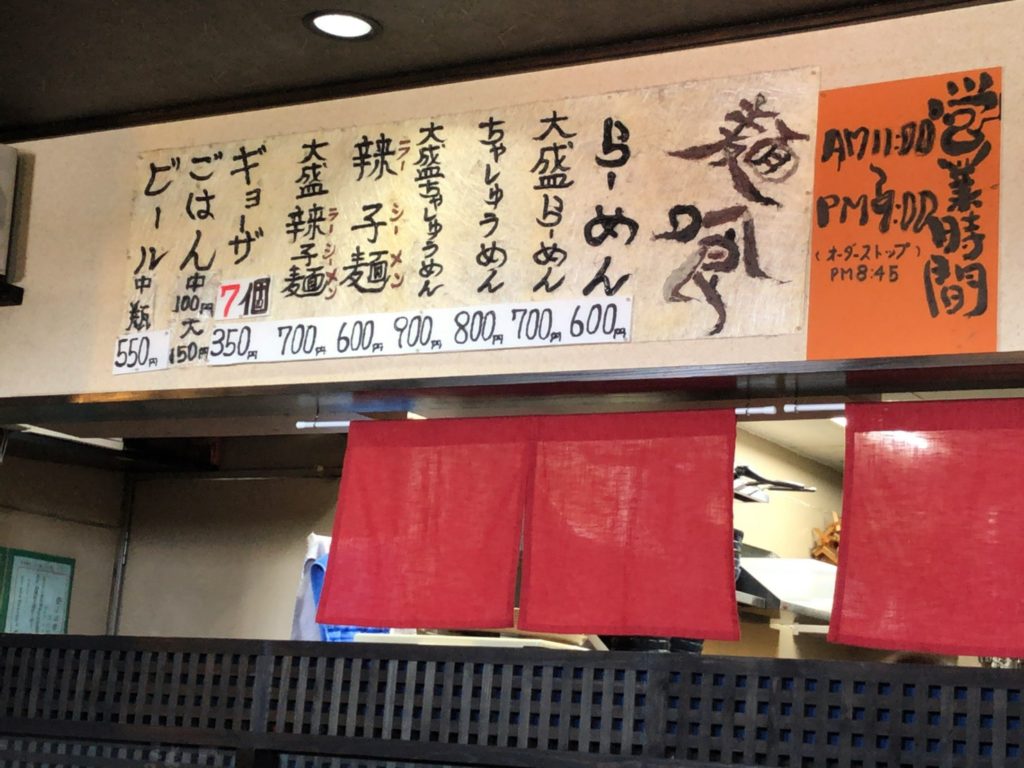 営業時間
AM11:00
〜
PM9:00
(オーダーストップ)
PM8:45
らーめん 600円
大盛らーめん 700円
ちゃしゅうめん 800円
大盛ちゃしゅうめん 900円
辣子麺 ラーシーメン 600円
大盛辣子麺 ラーシーメン 700円
ギョーザ 7個 350円
ごはん 中100円 大150円
ビール中瓶 550円